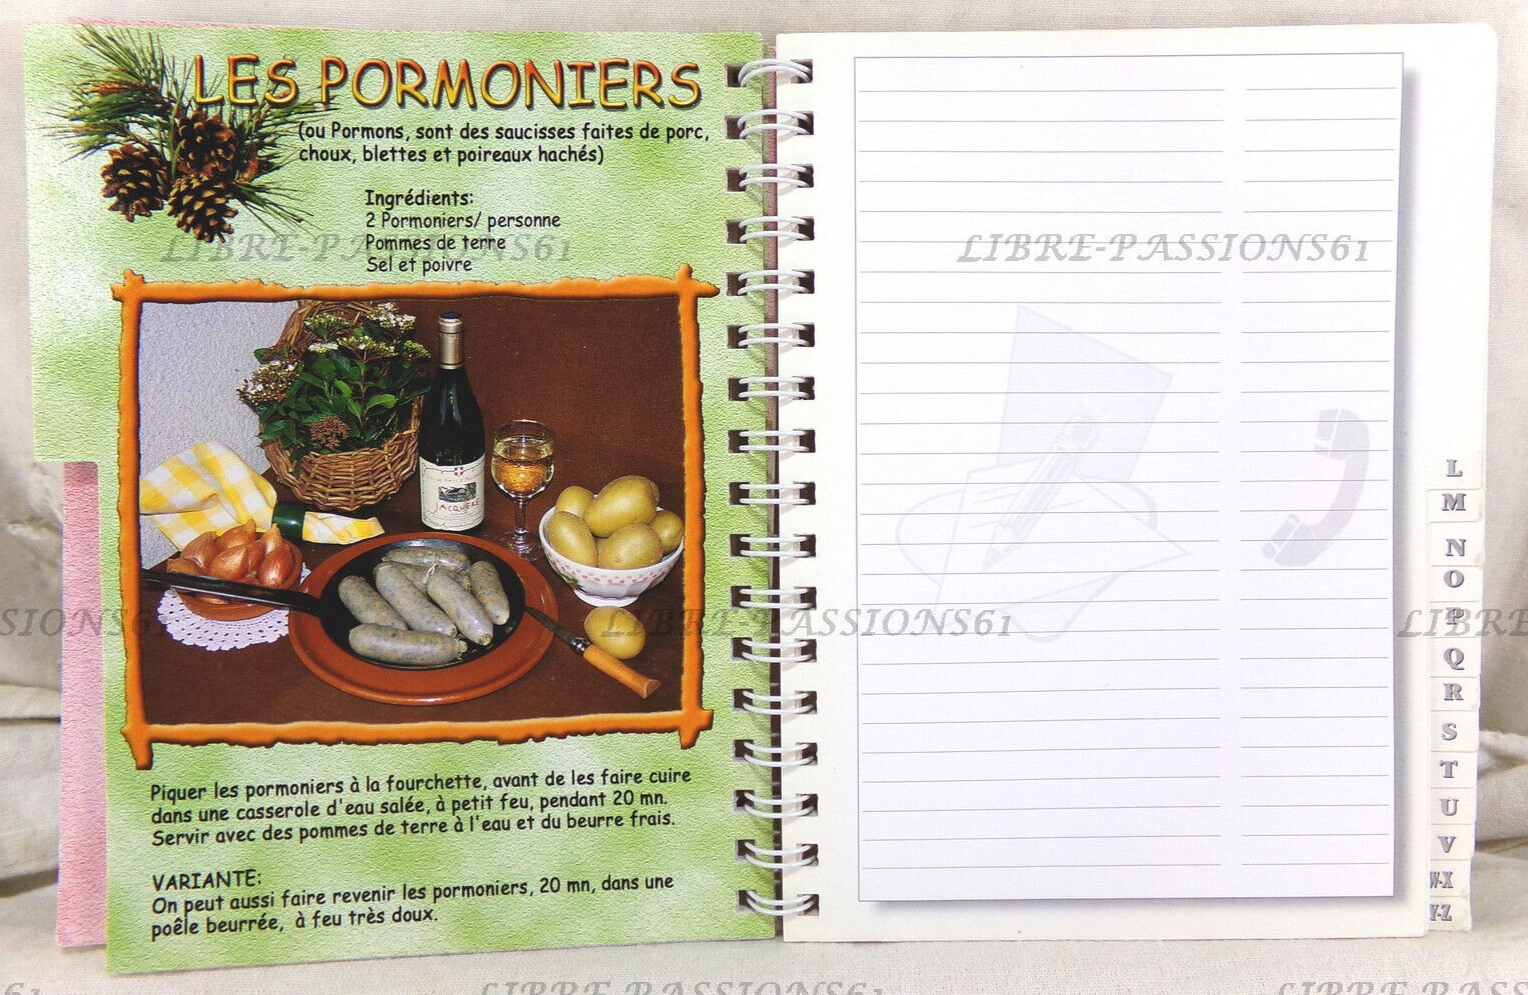 LES PORMONIERS
(ou Pormons, sont des saucisses faites de porc,
choux, blettes et poireaux hachés)
Ingrédients:
2 Pormoniers/ personne
Pommes de terre
Sel et poivre
JACQUERE
Piquer les pormoniers à la fourchette, avant de les faire cuire
dans une casserole d'eau salée, à petit feu, pendant 20 mn.
Servir avec des pommes de terre à l'eau et du beurre frais.
VARIANTE:
On peut aussi faire revenir les pormoniers, 20 mn, dans une
poêle beurrée, à feu très doux.
L
M
N
O
P
Q
R
S
T
U
V
W-X
Y-Z
LIBRE-PASSIONS61
LIBRE-PASSIONS61
SIONS61
LIBRE-PASSIONS61
LIBRE
61
LIBRE-PASSIONS61
LIBRE-PASS